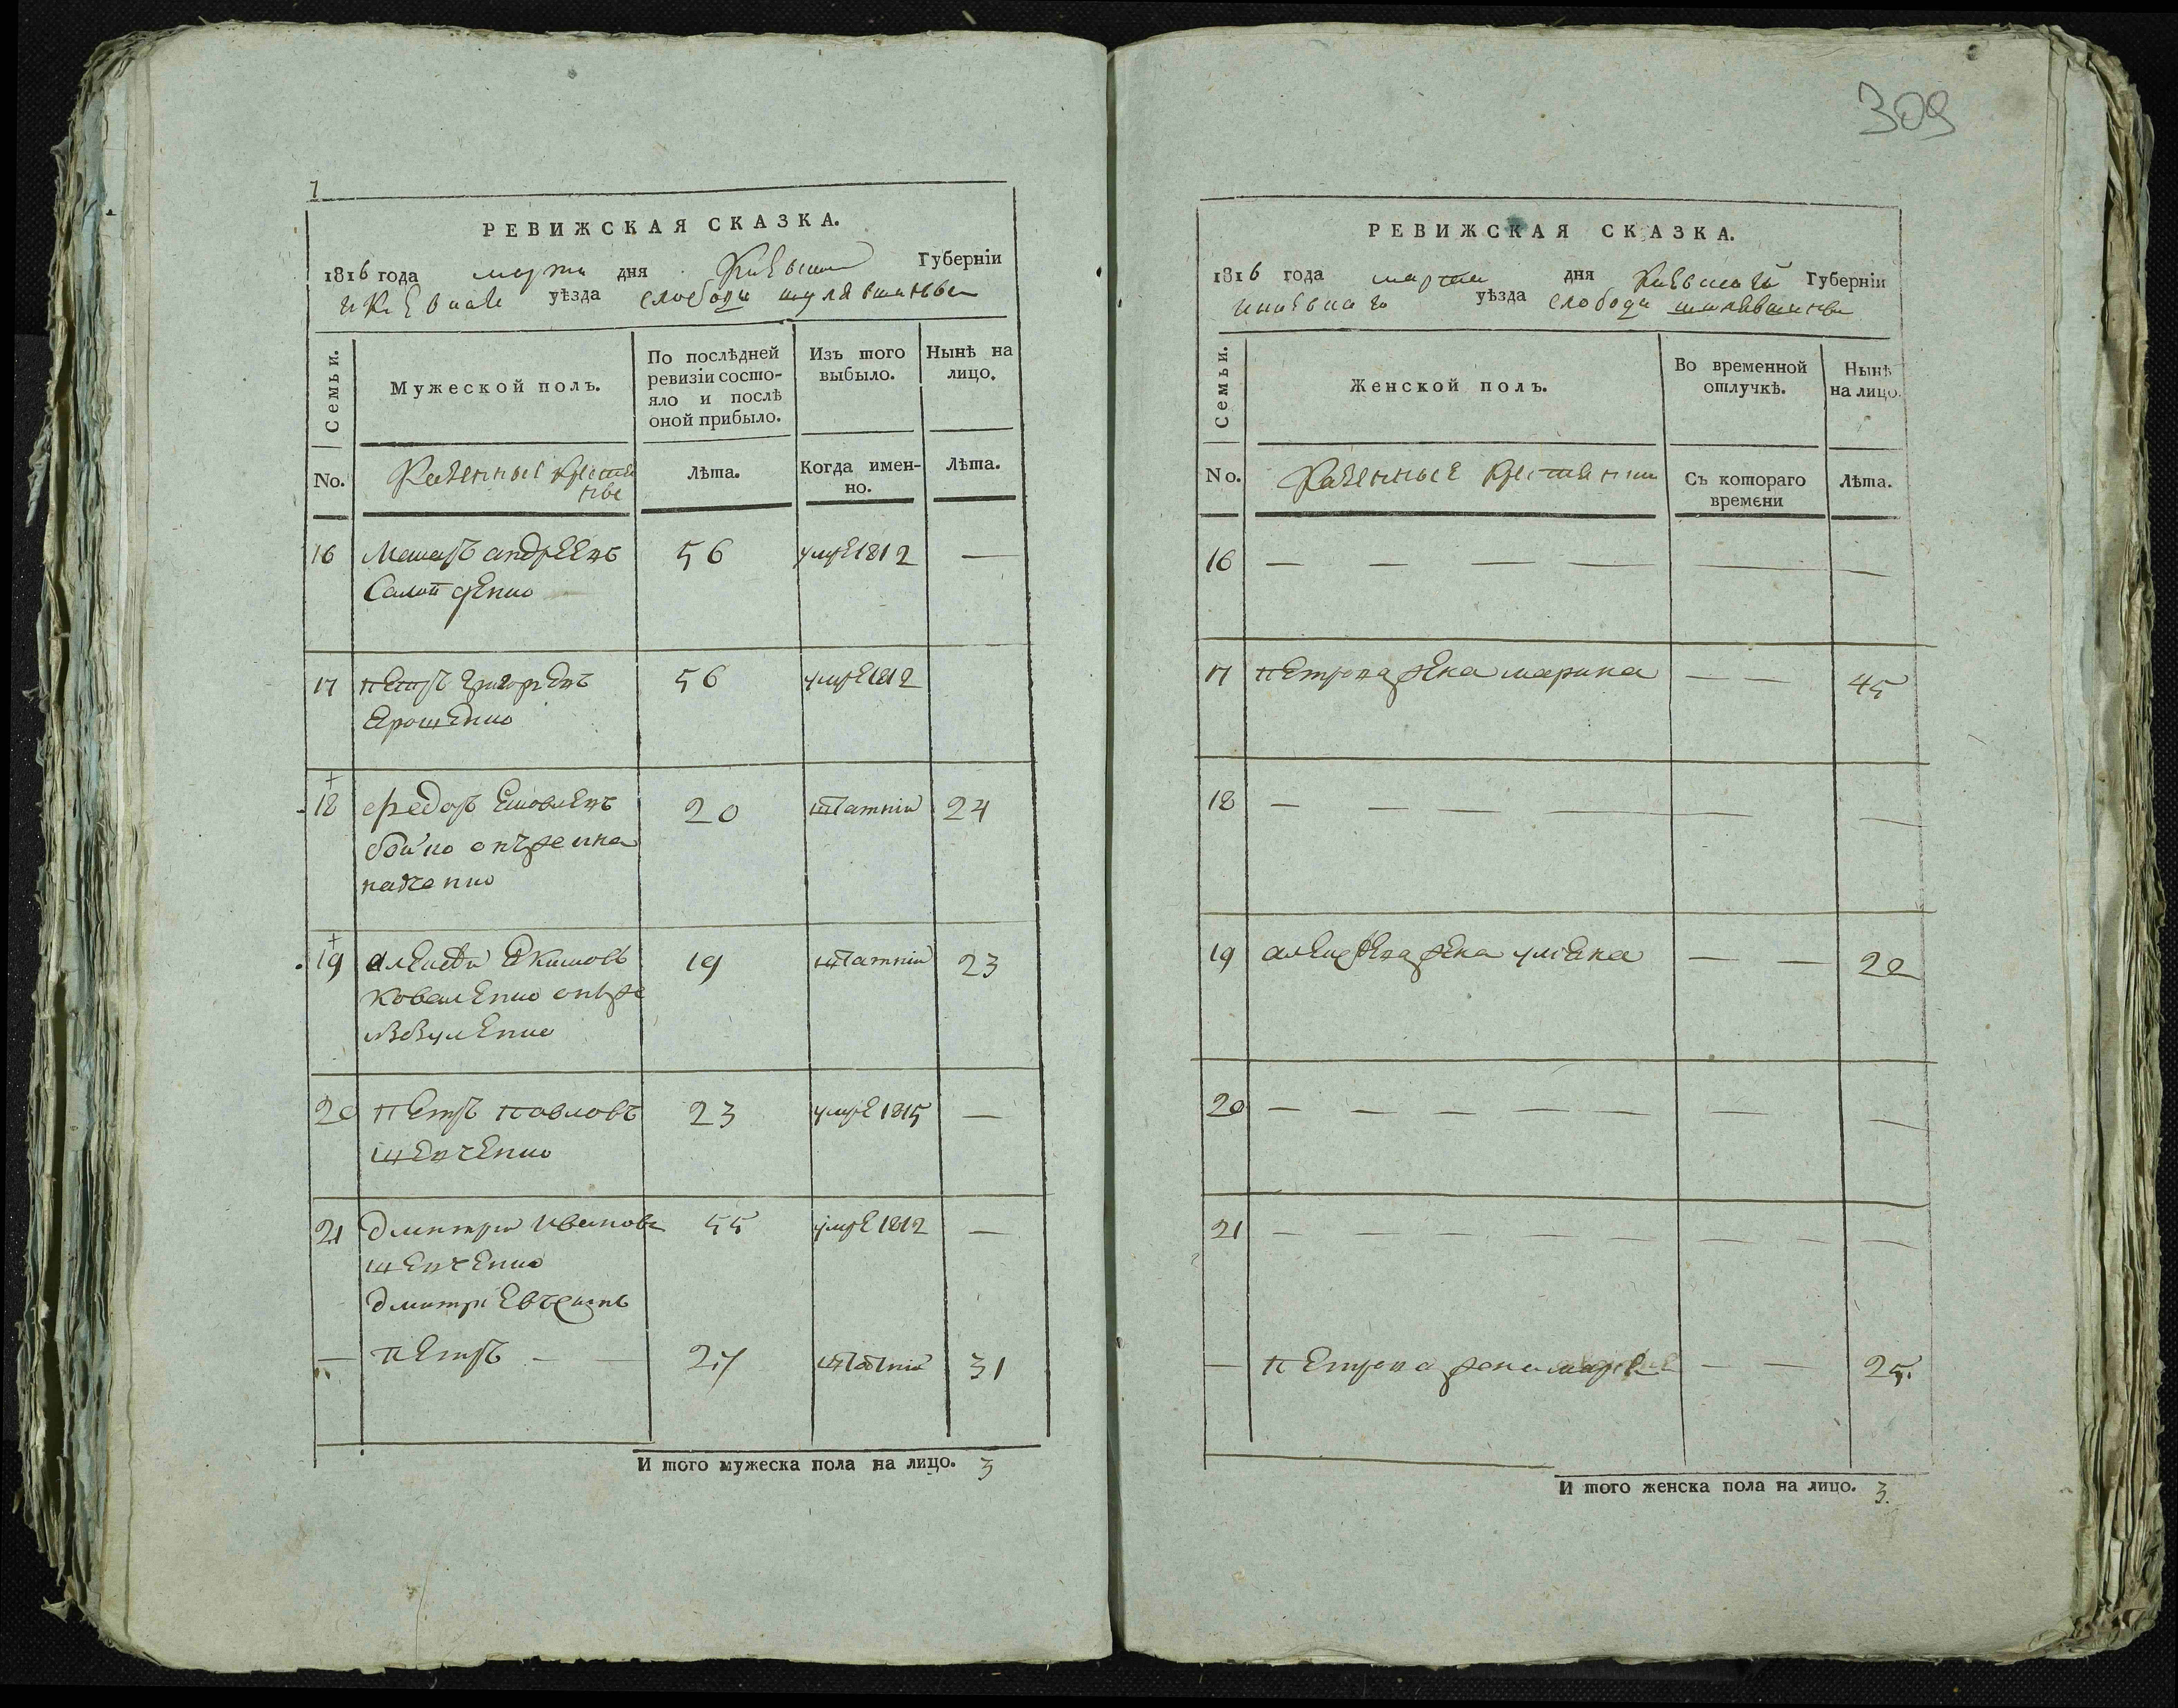 309
1
РЕВИЖСКАЯ СКАЗКА.
1816 года марта дня Киевской Губерніи
и Киевскаго уѣзда слободи шулявщины
Семьи.
Мужеской полъ.
По послѣдней ревизіи состояло и послѣ оной прибыло.
Изъ того выбыло.
Нынѣ на лицо.
No.
Казенные крестяне
Лѣта.
Когда именно.
Лѣта.
16 56 умре 1812 —
17 Петръ Григориевъ 56 умре 1812
Ерошенко
18 Федоръ 20 24
бойко онъже
19 Алексѣй Екимовъ 19 23
Коваленко онъже
20 Петръ Павловъ 23 умре 1815 —
шевченко
21 Дмитри Ивановъ 55 умре 1812 —
шевченко
Дмитриевъ сынъ
— Петръ — — 27 31
И того мужеска пола на лицо. 3
РЕВИЖСКАЯ СКАЗКА.
1816 года марта дня Киевской Губерніи
и киевскаго уѣзда слободи шулявщины
Семьи.
Женской полъ.
Во временной отлучкѣ.
Нынѣ на лицо.
No.
Казенные крестянки
Съ котораго времени
Лѣта.
16 — — — — — —
17 Петрова жена марина — — 45
18 — — — — —
19 жена улияна — — 22
20 — — — — — — —
21 — — — — — — — —
— Петрова жена — — 25.
И того женска пола на лицо. 3.